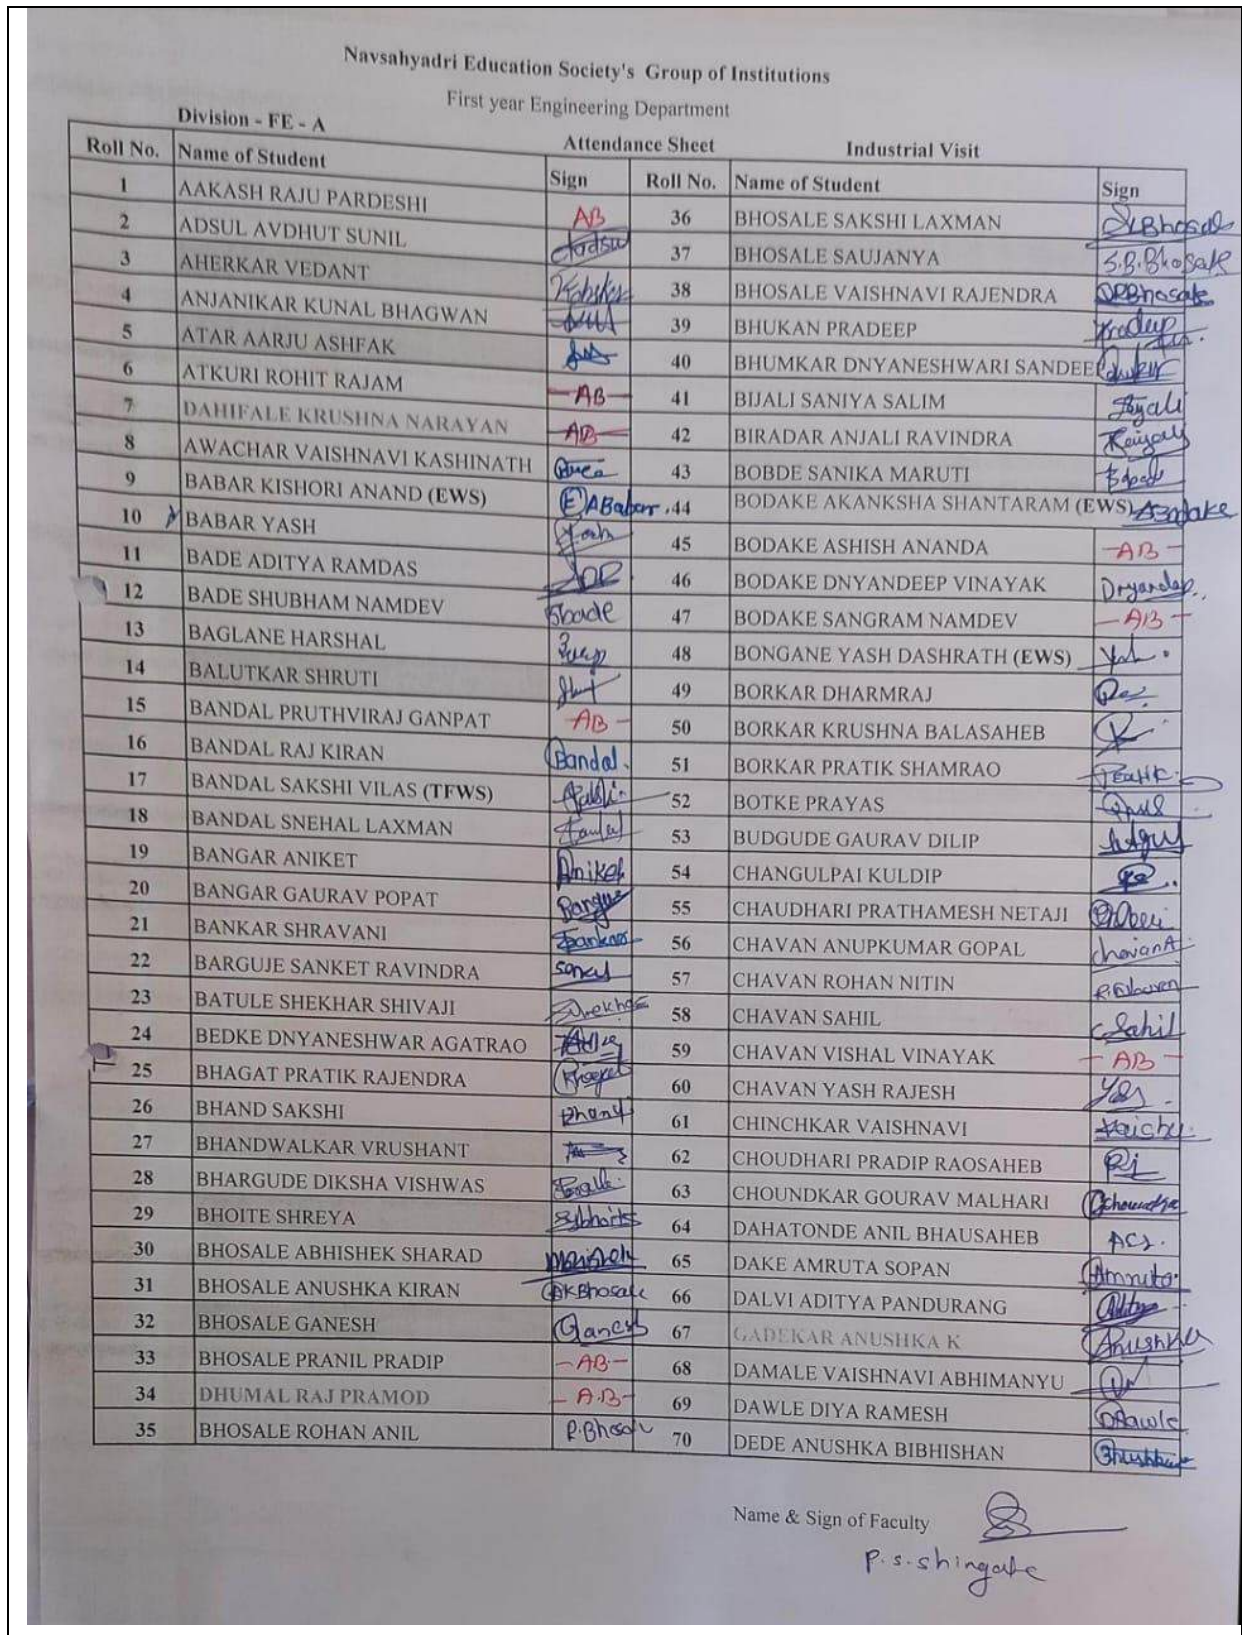 Navsahyadri Education Society's Group of Institutions
First year Engineering Department
Division - FE - A
Attendance Sheet Industrial Visit
Roll No. Name of Student Sign Roll No. Name of Student Sign
1 AAKASH RAJU PARDESHI AB 36 BHOSALE SAKSHI LAXMAN
2 ADSUL AVDHUT SUNIL 37 BHOSALE SAUJANYA S.B.Bhosale
3 AHERKAR VEDANT 38 BHOSALE VAISHNAVI RAJENDRA
4 ANJANIKAR KUNAL BHAGWAN 39 BHUKAN PRADEEP
5 ATAR AARJU ASHFAK 40 BHUMKAR DNYANESHWARI SANDEE
6 ATKURI ROHIT RAJAM AB 41 BIJALI SANIYA SALIM
7 DAHIFALE KRUSHNA NARAYAN AB 42 BIRADAR ANJALI RAVINDRA
8 AWACHAR VAISHNAVI KASHINATH 43 BOBDE SANIKA MARUTI
9 BABAR KISHORI ANAND (EWS) 44 BODAKE AKANKSHA SHANTARAM (EWS)
10 BABAR YASH 45 BODAKE ASHISH ANANDA AB
11 BADE ADITYA RAMDAS 46 BODAKE DNYANDEEP VINAYAK
12 BADE SHUBHAM NAMDEV 47 BODAKE SANGRAM NAMDEV AB
13 BAGLANE HARSHAL 48 BONGANE YASH DASHRATH (EWS)
14 BALUTKAR SHRUTI 49 BORKAR DHARMRAJ
15 BANDAL PRUTHVIRAJ GANPAT AB 50 BORKAR KRUSHNA BALASAHEB
16 BANDAL RAJ KIRAN Bandal 51 BORKAR PRATIK SHAMRAO
17 BANDAL SAKSHI VILAS (TFWS) 52 BOTKE PRAYAS
18 BANDAL SNEHAL LAXMAN 53 BUDGUDE GAURAV DILIP
19 BANGAR ANIKET Aniket 54 CHANGULPAI KULDIP
20 BANGAR GAURAV POPAT 55 CHAUDHARI PRATHAMESH NETAJI
21 BANKAR SHRAVANI 56 CHAVAN ANUPKUMAR GOPAL
22 BARGUJE SANKET RAVINDRA 57 CHAVAN ROHAN NITIN
23 BATULE SHEKHAR SHIVAJI 58 CHAVAN SAHIL
24 BEDKE DNYANESHWAR AGATRAO 59 CHAVAN VISHAL VINAYAK AB
25 BHAGAT PRATIK RAJENDRA 60 CHAVAN YASH RAJESH
26 BHAND SAKSHI 61 CHINCHKAR VAISHNAVI
27 BHANDWALKAR VRUSHANT 62 CHOUDHARI PRADIP RAOSAHEB
28 BHARGUDE DIKSHA VISHWAS 63 CHOUNDKAR GOURAV MALHARI
29 BHOITE SHREYA 64 DAHATONDE ANIL BHAUSAHEB
30 BHOSALE ABHISHEK SHARAD 65 DAKE AMRUTA SOPAN
31 BHOSALE ANUSHKA KIRAN 66 DALVI ADITYA PANDURANG
32 BHOSALE GANESH 67 GADEKAR ANUSHKA K
33 BHOSALE PRANIL PRADIP AB 68 DAMALE VAISHNAVI ABHIMANYU
34 DHUMAL RAJ PRAMOD AB 69 DAWLE DIYA RAMESH
35 BHOSALE ROHAN ANIL 70 DEDE ANUSHKA BIBHISHAN
Name & Sign of Faculty
P.S. Shingate